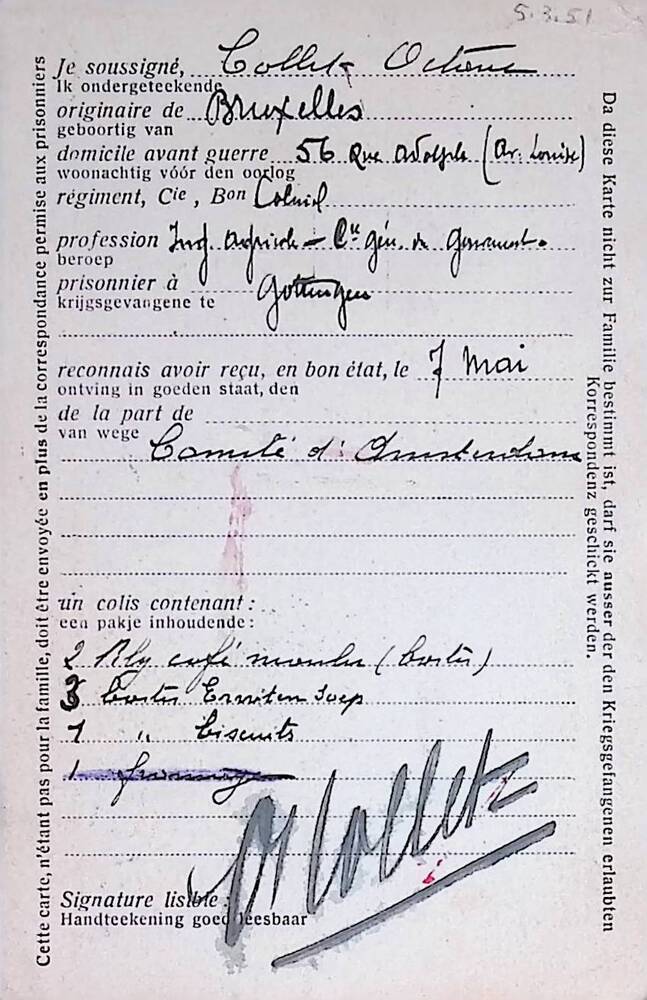 5.3.51
Je soussigné, Collet Octave
Ik ondergeteekende
originaire de Bruxelles
geboortig van
domicile avant guerre 56 Rue Adolphe (Av. Louise)
woonachtig vóór den oorlog
régiment, Cie, Bon Colonel
profession Ing. Agricole - Cre gén. du
beroep
prisonnier à Gottingen
krijgsgevangene te
reconnais avoir reçu, en bon état, le 7 Mai
ontving in goeden staat, den
de la part de
van wege Comité d'Amsterdam
un colis contenant :
een pakje inhoudende :
2 café moulu (boîtes)
3 boîtes Erwten Soep
1 " biscuits
1 fromage
Collet
Signature lisible :
Handteekening goed leesbaar
Cette carte, n'étant pas pour la famille, doit être envoyée en plus de la correspondance permise aux prisonniers
Da diese Karte nicht zur Familie bestimmt ist, darf sie ausser der den Kriegsgefangenen erlaubten
Korrespondenz geschickt werden.